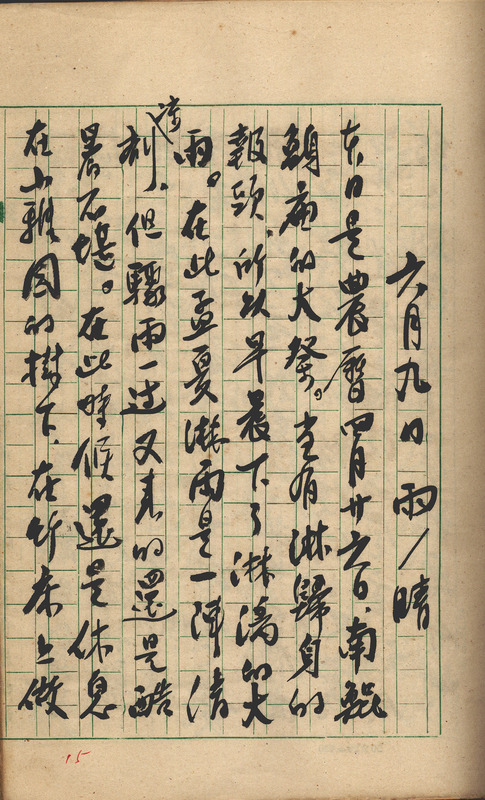 六月九日 雨/晴
本日是農曆四月廿六日、南鯤
鯓庙的大祭。常有淋歸身的
報頭、所以早晨下了淋漓的大
雨。在此孟夏淋雨是一陣清
凉利、但驟雨一过又来的還是酷
暑不堪。在此時候還是休息
在小雅園的樹下、在竹床上做
15